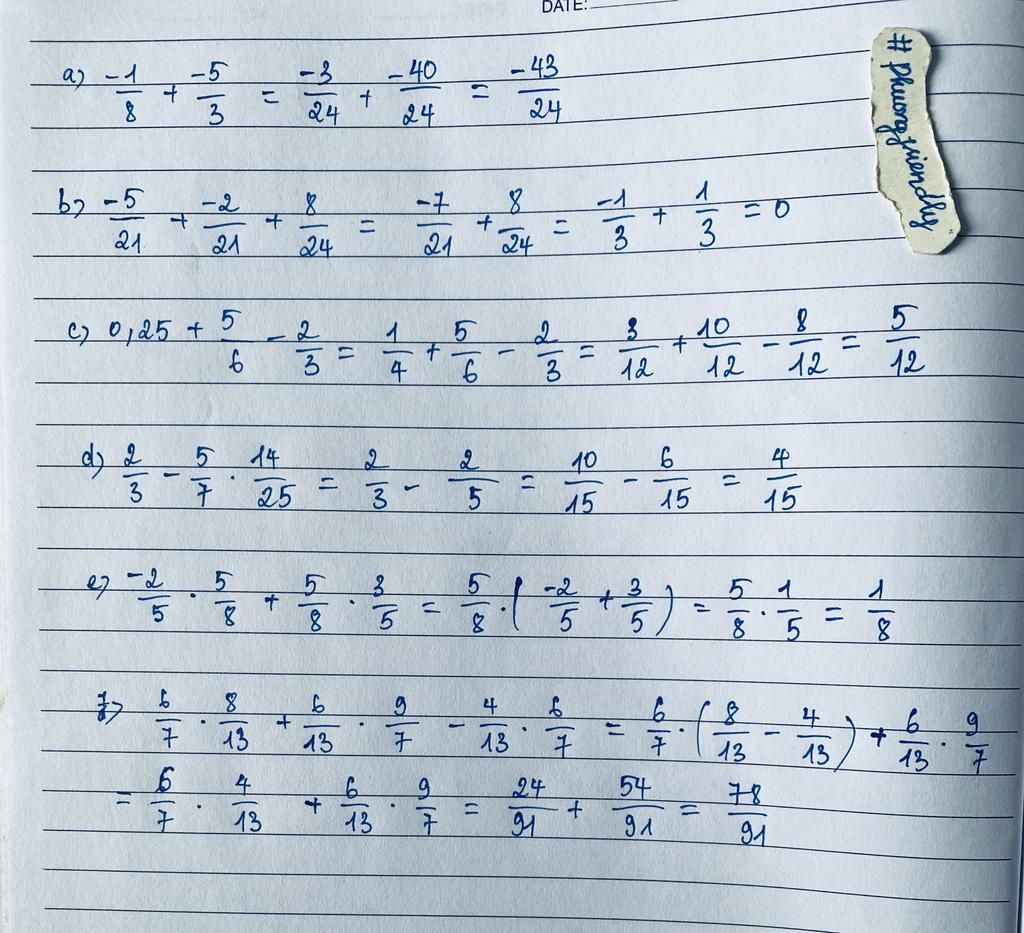 DATE:
a) -1/8 + -5/3 = -3/24 + -40/24 = -43/24
# phuongfriendly
b) -5/21 + -2/21 + 8/24 = -7/21 + 8/24 = -1/3 + 1/3 = 0
c) 0,25 + 5/6 - 2/3 = 1/4 + 5/6 - 2/3 = 3/12 + 10/12 - 8/12 = 5/12
d) 2/3 - 5/7 . 14/25 = 2/3 - 2/5 = 10/15 - 6/15 = 4/15
e) -2/5 . 5/8 + 5/8 . 3/5 = 5/8 . ( -2/5 + 3/5 ) = 5/8 . 1/5 = 1/8
f) 6/7 . 8/13 + 6/13 . 9/7 - 4/13 . 6/7 = 6/7 . ( 8/13 - 4/13 ) + 6/13 . 9/7
= 6/7 . 4/13 + 6/13 . 9/7 = 24/91 + 54/91 = 78/91